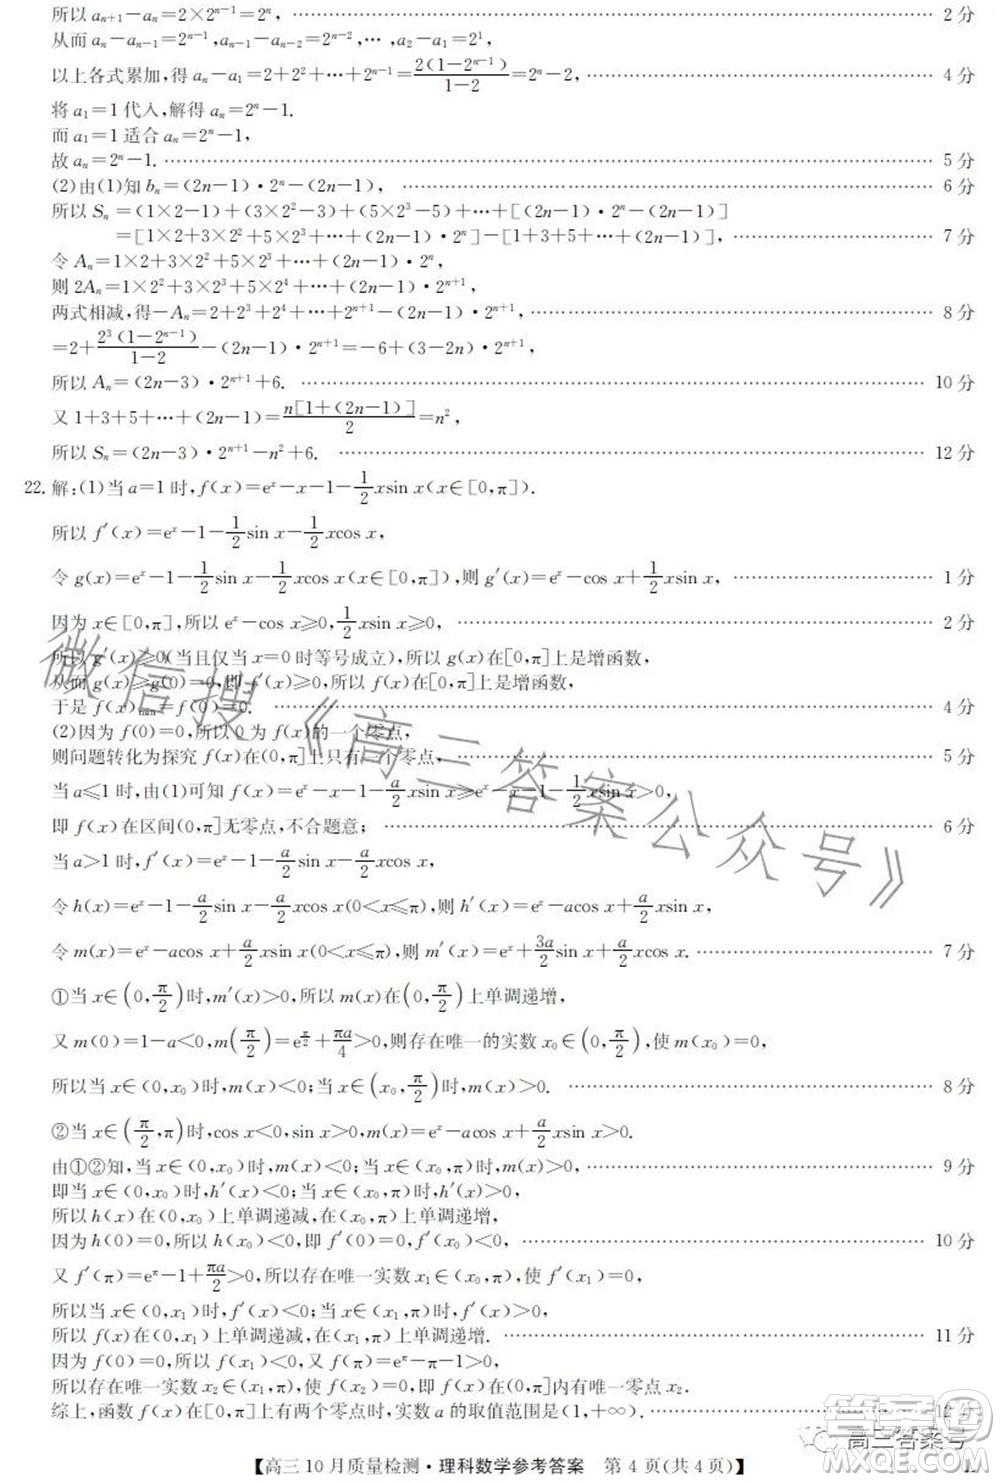 所以 aₙ₊₁-aₙ=2×2ⁿ⁻¹=2ⁿ, …… 2 分
从而 aₙ-aₙ₋₁=2ⁿ⁻¹,aₙ₋₁-aₙ₋₂=2ⁿ⁻²,…,a₂-a₁=2¹,
以上各式累加,得 aₙ-a₁=2+2²+…+2ⁿ⁻¹=2(1-2ⁿ⁻¹)/(1-2)=2ⁿ-2, …… 4 分
将 a₁=1 代入,解得 aₙ=2ⁿ-1.
而 a₁=1 适合 aₙ=2ⁿ-1,
故 aₙ=2ⁿ-1. …… 5 分
(2)由(1)知 bₙ=(2n-1)·2ⁿ-(2n-1), …… 6 分
所以 Sₙ=(1×2-1)+(3×2²-3)+(5×2³-5)+…+[(2n-1)·2ⁿ-(2n-1)]
=[1×2+3×2²+5×2³+…+(2n-1)·2ⁿ]-[1+3+5+…+(2n-1)], …… 7 分
令 Aₙ=1×2+3×2²+5×2³+…+(2n-1)·2ⁿ,
则 2Aₙ=1×2²+3×2³+5×2⁴+…+(2n-1)·2ⁿ⁺¹,
两式相减,得-Aₙ=2+2³+2⁴+…+2ⁿ⁺¹-(2n-1)·2ⁿ⁺¹ …… 8 分
=2+2³(1-2ⁿ⁻¹)/(1-2)-(2n-1)·2ⁿ⁺¹=-6+(3-2n)·2ⁿ⁺¹,
所以 Aₙ=(2n-3)·2ⁿ⁺¹+6. …… 10 分
又 1+3+5+…+(2n-1)=n[1+(2n-1)]/2=n²,
所以 Sₙ=(2n-3)·2ⁿ⁺¹-n²+6. …… 12 分
22. 解:(1)当 a=1 时,f(x)=eˣ-x-1-1/2xsin x(x∈[0,π]).
所以 f′(x)=eˣ-1-1/2sin x-1/2xcos x,
令 g(x)=eˣ-1-1/2sin x-1/2xcos x(x∈[0,π]),则 g′(x)=eˣ-cos x+1/2xsin x, …… 1 分
因为 x∈[0,π],所以 eˣ-cos x≥0,1/2xsin x≥0, …… 2 分
所以 g′(x)≥0(当且仅当 x=0 时等号成立),所以 g(x)在[0,π]上是增函数,
从而 g(x)≥g(0)=0,即 f′(x)≥0,所以 f(x)在[0,π]上是增函数,
于是 f(x)ₘᵢₙ=f(0)=0. …… 4 分
(2)因为 f(0)=0,所以 0 为 f(x)的一个零点,
则问题转化为探究 f(x)在(0,π]上只有一个零点, …… 5 分
当 a≤1 时,由(1)可知 f(x)=eˣ-x-1-a/2xsin x≥eˣ-x-1-1/2xsin x>0,
即 f(x)在区间(0,π]无零点,不合题意; …… 6 分
当 a>1 时,f′(x)=eˣ-1-a/2sin x-a/2xcos x,
令 h(x)=eˣ-1-a/2sin x-a/2xcos x(0<x≤π),则 h′(x)=eˣ-acos x+a/2xsin x,
令 m(x)=eˣ-acos x+a/2xsin x(0<x≤π),则 m′(x)=eˣ+3a/2sin x+a/2xcos x. …… 7 分
①当 x∈(0,π/2)时,m′(x)>0,所以 m(x)在(0,π/2)上单调递增,
又 m(0)=1-a<0,m(π/2)=e^(π/2)+πa/4>0,则存在唯一的实数 x₀∈(0,π/2),使 m(x₀)=0,
所以当 x∈(0,x₀)时,m(x)<0;当 x∈(x₀,π/2)时,m(x)>0. …… 8 分
②当 x∈(π/2,π)时,cos x<0,sin x>0,m(x)=eˣ-acos x+a/2xsin x>0.
由①②知,当 x∈(0,x₀)时,m(x)<0;当 x∈(x₀,π)时,m(x)>0, …… 9 分
即当 x∈(0,x₀)时,h′(x)<0;当 x∈(x₀,π)时,h′(x)>0,
所以 h(x)在(0,x₀)上单调递减,在(x₀,π)上单调递增,
因为 h(0)=0,所以 h(x₀)<0,即 f′(0)=0,f′(x₀)<0, …… 10 分
又 f′(π)=e^π-1+πa/2>0,所以存在唯一实数 x₁∈(x₀,π),使 f′(x₁)=0,
所以当 x∈(0,x₁)时,f′(x)<0;当 x∈(x₁,π)时,f′(x)>0,
所以 f(x)在(0,x₁)上单调递减,在(x₁,π)上单调递增. …… 11 分
因为 f(0)=0,所以 f(x₁)<0,又 f(π)=e^π-π-1>0,
所以存在唯一实数 x₂∈(x₁,π),使 f(x₂)=0,即 f(x)在(0,π]内有唯一零点 x₂.
综上,函数 f(x)在[0,π]上有两个零点时,实数 a 的取值范围是(1,+∞). …… 12 分
【高三 10 月质量检测·理科数学参考答案 第 4 页(共 4 页)】
微信搜《高三答案公众号》
答案圈
高三答案号